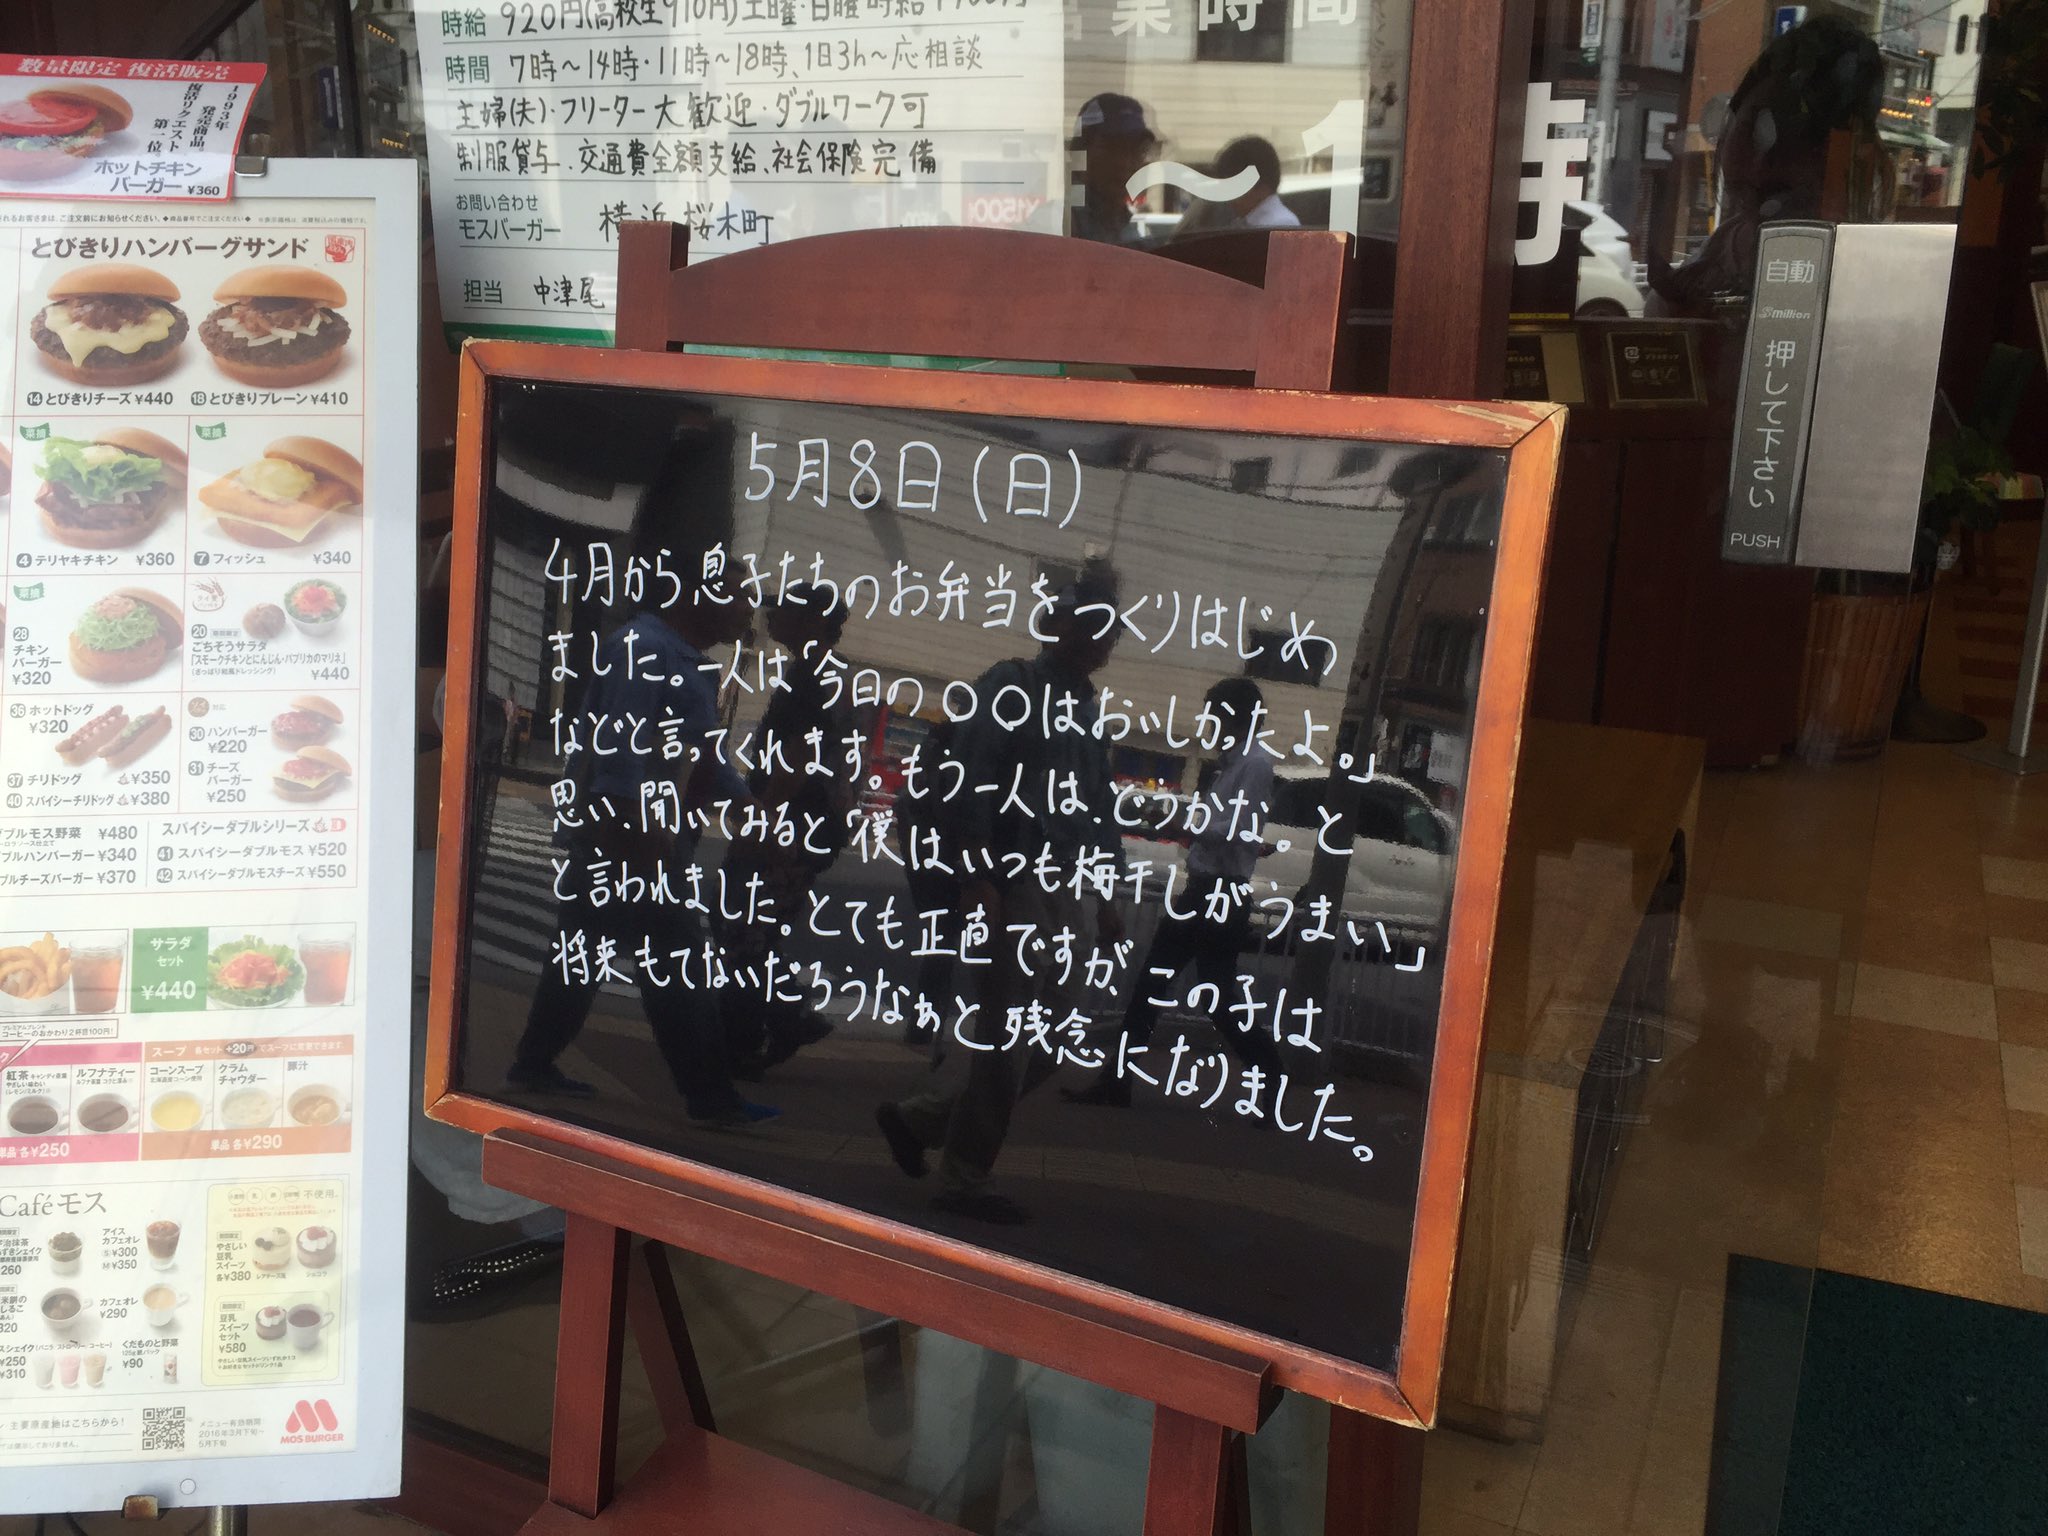 時給 920円(高校生910円)土曜・日曜時給
時間 7時～14時・11時～18時、1日3h～応相談
主婦(夫)・フリーター大歓迎・ダブルワーク可
制服貸与、交通費全額支給、社会保険完備
お問い合わせ
モスバーガー 横浜桜木町
担当 中津尾
業時間
～1
時
自動
Million
押して下さい
PUSH
数量限定 復活販売
1993年
発売商品
復活リクエスト
第一位
ホットチキン
バーガー ¥360
とびきりハンバーグサンド
14 とびきりチーズ ¥440
18 とびきりプレーン ¥410
菜摘
菜摘
4 テリヤキチキン ¥360
7 フィッシュ ¥340
菜摘
28
チキン
バーガー
¥320
20 期間限定
ごちそうサラダ
「スモークチキンとにんじん・パプリカのマリネ」
(さっぱり和風ドレッシング)
¥440
36 ホットドッグ
¥320
37 チリドッグ ¥350
40 スパイシーチリドッグ ¥380
対応
30 ハンバーガー
¥220
31 チーズ
バーガー
¥250
ブルモス野菜 ¥480
ブルハンバーガー ¥340
ブルチーズバーガー ¥370
スパイシーダブルシリーズ
41 スパイシーダブルモス ¥520
42 スパイシーダブルモスチーズ ¥550
サラダ
セット
¥440
プレミアムブレンド
コーヒーのおかわり2杯目100円!
紅茶
ルフナティー
単品 各¥250
スープ 各セット+20円でスープに変更できます
コーンスープ
クラム
チャウダー
豚汁
単品 各¥290
Caféモス
アイス
カフェオレ
S ¥300
M ¥350
260
カフェオレ
¥290
320
スシェイク(バニラ ストロベリー コーヒー)
¥250
¥310
くだものと野菜
¥90
不使用。
期間限定
やさしい
豆乳
スイーツ
各¥380
期間限定
豆乳
スイーツ
セット
¥580
主要原産地はこちらから!
メニュー有効期間
2016年3月下旬～
5月下旬
MOS BURGER
5月8日(日)
4月から息子たちのお弁当をつくりはじめ
ました。一人は「今日の〇〇はおいしかったよ。」
などと言ってくれます。もう一人は、どうかな。と
思い、聞いてみると「僕はいつも梅干しがうまい」
と言われました。とても正直ですが、この子は
将来もてないだろうなぁと残念になりました。